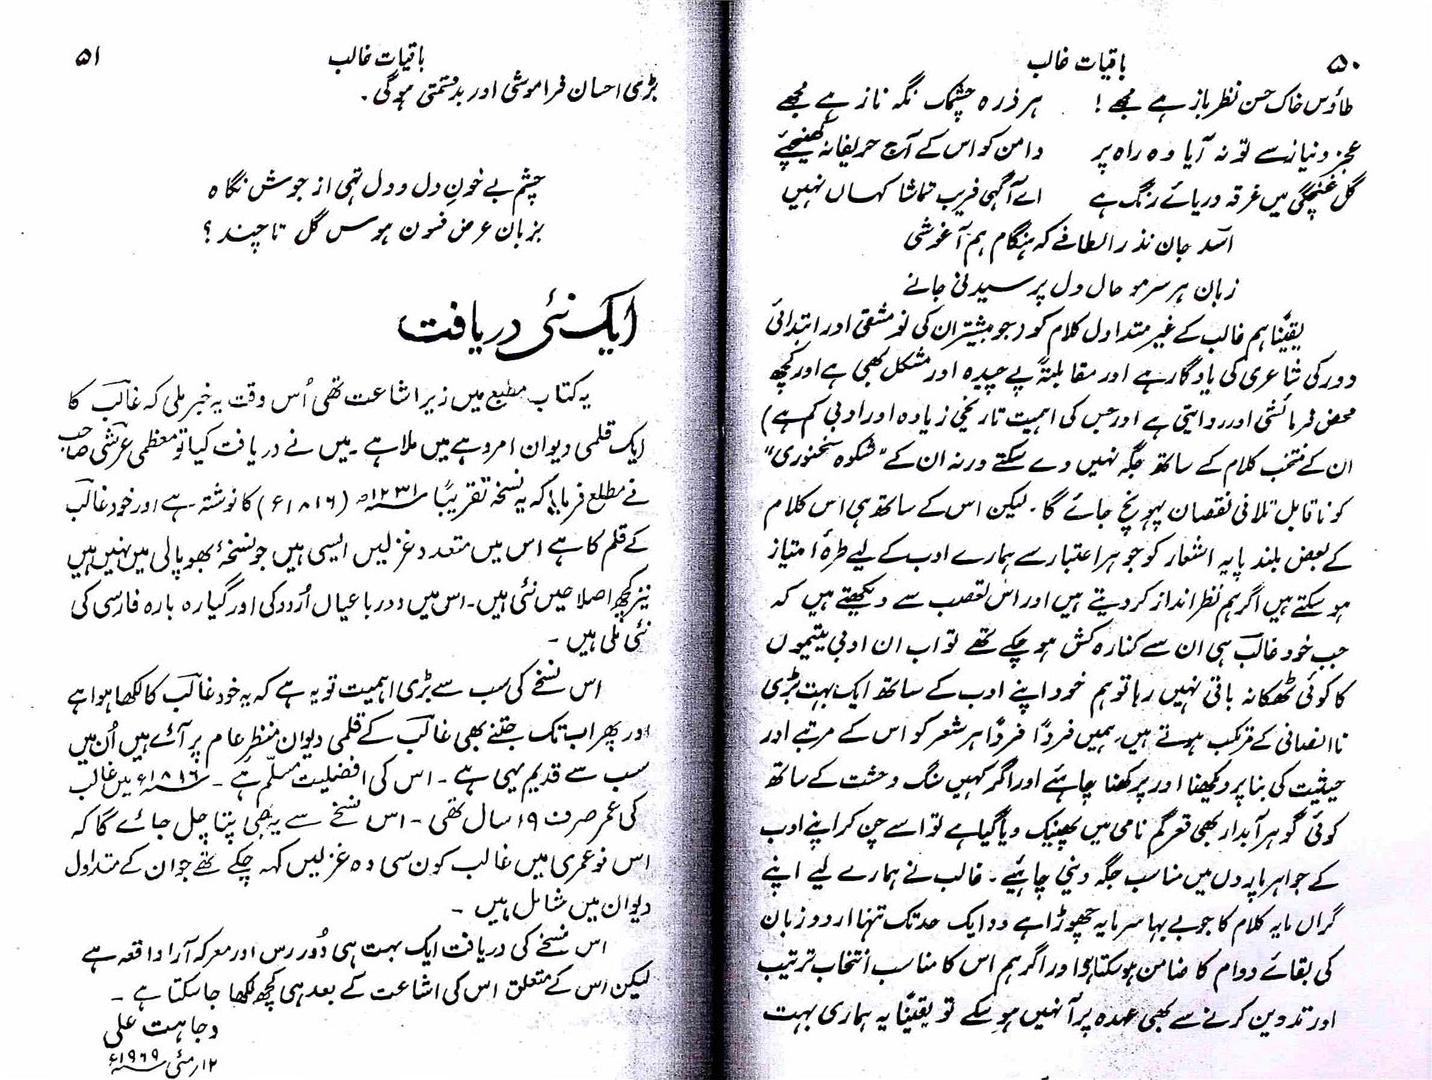 ۵۰
باقیات غالب
طاؤس خاک حسن نظر باز ہے مجھے! ہر ذرہ چشمک نگہ ناز ہے مجھے
عجز و نیاز سے تو نہ آیا وہ راہ پر دامن کو اس کے آج حریفانہ کھینچیے
گل غنچگی میں غرقہ دریائے رنگ ہے اے آگہی فریب تماشا کہاں نہیں
اسد جان نذر الطافے کہ ہنگام ہم آغوشی
زبان ہر سر مو حال دل پرسیدنی جانے
یقیناً ہم غالب کے غیر متداول کلام کو (جو بیشتر ان کی نو مشقی اور ابتدائی
دور کی شاعری کی یادگار ہے اور مقابلۃً پے چیدہ اور مشکل بھی ہے اور کچھ
محض فرمائشی اور روایتی ہے اور جس کی اہمیت تاریخی زیادہ اور ادبی کم ہے)
ان کے منتخب کلام کے ساتھ جگہ نہیں دے سکتے ورنہ ان کے "شکوہ سخنوری"
کو ناقابل تلافی نقصان پہونچ جائے گا۔ لیکن اس کے ساتھ ہی اس کلام
کے بعض بلند پایہ اشعار کو جو ہر اعتبار سے ہمارے ادب کے لیے طرۂ امتیاز
ہو سکتے ہیں اگر ہم نظر انداز کر دیتے ہیں اور اس تعصب سے دیکھتے ہیں کہ
جب خود غالب ہی ان سے کنارہ کش ہو چکے تھے تو اب ان ادبی یتیموں
کا کوئی ٹھکانہ باقی نہیں رہا تو ہم خود اپنے ادب کے ساتھ ایک بہت بڑی
ناانصافی کے مرتکب ہوتے ہیں۔ ہمیں فرداً فرداً ہر شعر کو اس کے مرتبے اور
حیثیت کی بنا پر دیکھنا اور پرکھنا چاہئے اور اگر کہیں سنگ و خشت کے ساتھ
کوئی گوہر آبدار بھی قعر گم نامی میں پھینک دیا گیا ہے تو اسے چن کر اپنے ادب
کے جواہر پاروں میں مناسب جگہ دینی چاہئیے۔ غالب نے ہمارے لیے اپنے
گراں مایہ کلام کا جو بے بہا سرمایہ چھوڑا ہے وہ ایک حد تک تنہا اردو زبان
کی بقائے دوام کا ضامن ہو سکتا ہے اور اگر ہم اس کا مناسب انتخاب ترتیب
اور تدوین کرنے سے بھی عہدہ برآ نہیں ہو سکے تو یقیناً یہ ہماری بہت
۵۱
باقیات غالب
بڑی احسان فراموشی اور بدقسمتی ہوگی۔
چشم بے خونِ دل و دل تہی از جوش نگاہ
بزبان عرض فسون ہوس گل تا چند؟
ایک نئی دریافت
یہ کتاب مطبع میں زیر اشاعت تھی اُس وقت یہ خبر ملی کہ غالب کا
ایک قلمی دیوان امروہے میں ملا ہے۔ میں نے دریافت کیا تو معظمی عرشی صاحب
نے مطلع فرمایا کہ یہ نسخہ تقریباً سنہ ۱۲۳۱ھ (۱۸۱۶ء) کا نوشتہ ہے اور خود غالب
کے قلم کا ہے اس میں متعدد غزلیں ایسی ہیں جو نسخۂ بھوپالی میں نہیں ہیں
نیز کچھ اصلاحیں نئی ہیں۔ اس میں دو رباعیاں اُردو کی اور گیارہ بارہ فارسی کی
نئی ملی ہیں۔
اس نسخے کی سب سے بڑی اہمیت تو یہ ہے کہ یہ خود غالب کا لکھا ہوا ہے
اور پھر اب تک جتنے بھی غالب کے قلمی دیوان منظر عام پر آئے ہیں اُن میں
سب سے قدیم یہی ہے۔ اس کی افضلیت مسلّم ہے۔ سنہ ۱۸۱۶ء میں غالب
کی عمر صرف ۱۹ سال تھی۔ اس نسخے سے یہ بھی پتا چل جائے گا کہ
اس نو عمری میں غالب کون سی وہ غزلیں کہہ چکے تھے جو ان کے متداول
دیوان میں شامل ہیں۔
اس نسخے کی دریافت ایک بہت ہی دُور رس اور معرکہ آرا واقعہ ہے
لیکن اس کے متعلق اس کی اشاعت کے بعد ہی کچھ لکھا جا سکتا ہے۔
وجاہت علی
۱۲ مئی سنہ ۱۹۶۹ء